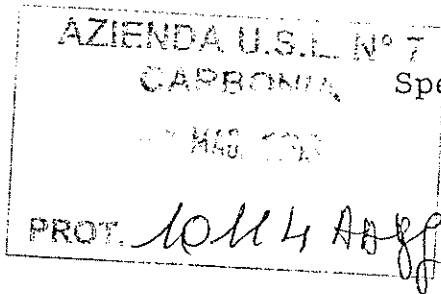 AZIENDA U.S.L. N° 7
CARBONIA Spe
MAG.
PROT. 10114